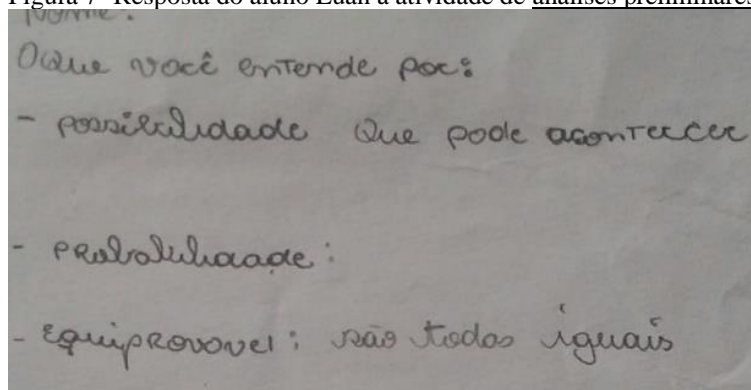 Figura 7- Resposta do aluno Luan à atividade de análises preliminares
Nome:
O que você entende por:
- possibilidade Que pode acontecer
- probabilidade:
- equiprovovel: são todos iguais